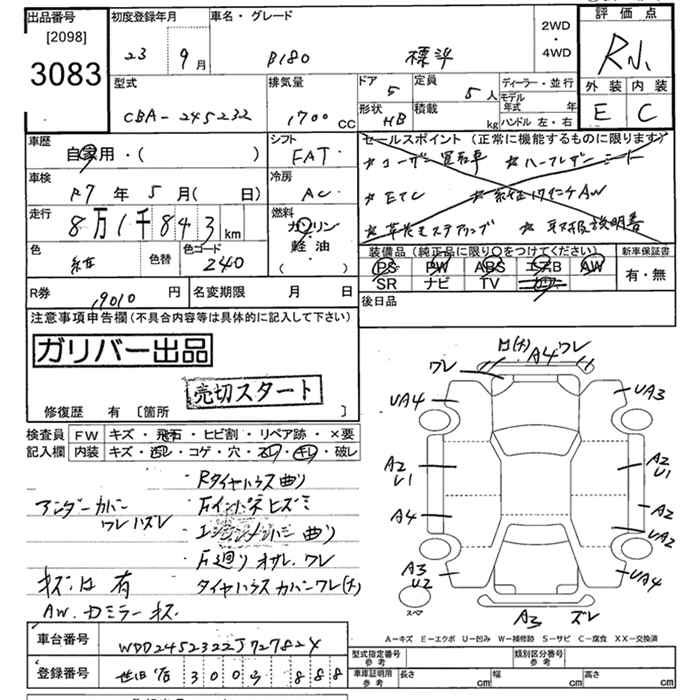 出品番号 初度登録年月 車名・グレード 評価点
[2098] 3083
23 9月 B180 標準 2WD・4WD R小
型式 排気量 ドア 5 定員 5人 ディーラー・並行 外装 内装
CBA-245232 1700cc 形状 HB 積載 kg モデル年式 年 E C
ハンドル 左・右
車歴 シフト セールスポイント(正常に機能するものに限ります)
自家用・( ) FAT ★ユーザー買取車 ★ハーフレザーシート
車検 冷房
R7年5月(日) AC ★ETC ★純正17インチAW
走行 燃料
8万1千843km ガソリン ★革巻きステアリング ★取扱説明書
色 色替 色コード 軽油・ 装備品(純正品に限り〇をつけてください) 新車保証書
紺 240 ・( ) PS PW ABS エアB AW 有・無
SR ナビ TV カワ
R券 9010円 名変期限 月 日 後日品
注意事項申告欄(不具合内容等は具体的に記入して下さい)
ガリバー出品
売切スタート
修復歴 有 [箇所 ]
検査員 FW キズ・飛石・ヒビ割・リペア跡・×要
記入欄 内装 キズ・汚レ・コゲ・穴・スレ・キレ・破レ
Rタイヤハウス曲り
アンダーカバー ワレハズレ
曲り
ワレ
キズ凹有 タイヤハウスカバーワレ(大)
AW.ドミラーキズ
ワレ 凹(大) A4 ワレ
UA4 UA3
A2 U1 A2 U1
A4 A2
UA2
A3 U2 UA4
スペア A3 ズレ
A-キズ E-エクボ U-凹み W-補修跡 S-サビ C-腐食 XX-交換済
車台番号 WDD2452322J727824 型式指定番号 参考 類別区分番号 参考
登録番号 世田谷 3003 888 車庫証明用 参考 長さ cm 幅 cm 高さ cm